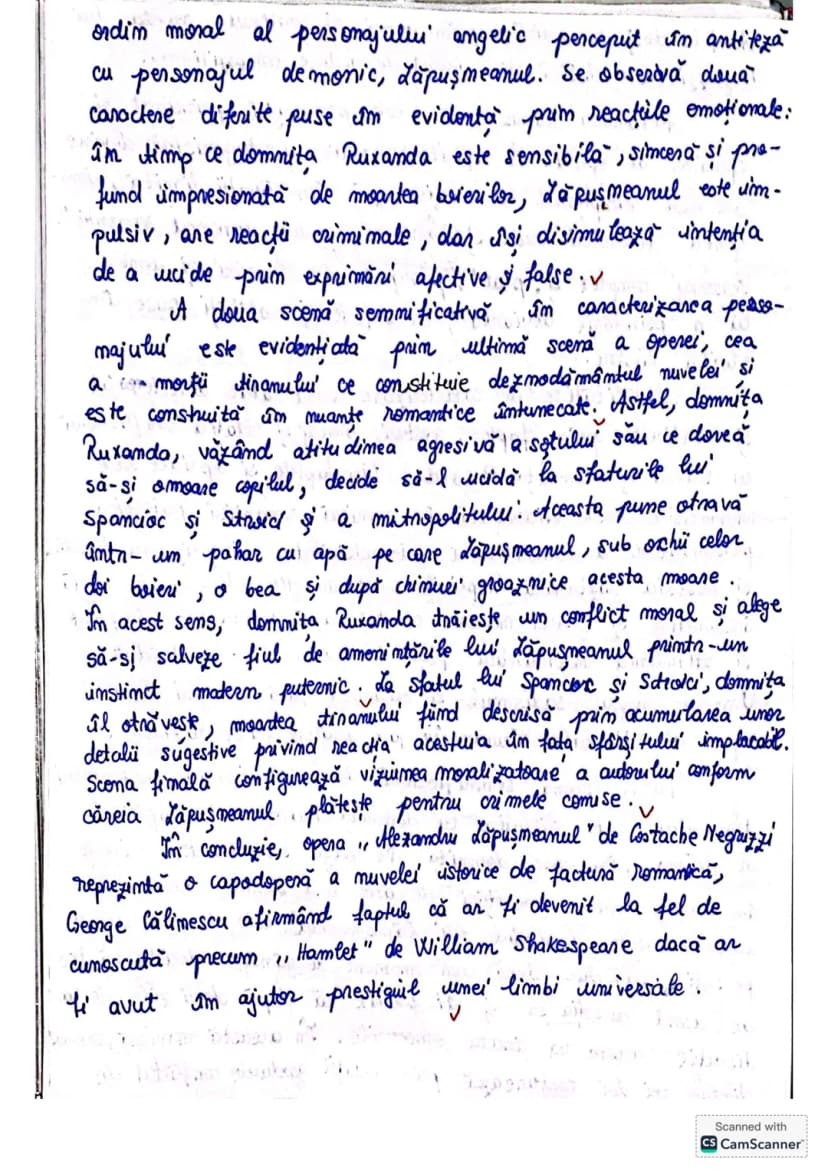 ordin moral al personajului angelic perceput în antiteză
cu personajul demonic, Lăpușneanul. Se observă două
caractere diferite puse în evidență prin reacțiile emoționale:
în timp ce domnița Ruxanda este sensibilă, sinceră și pro-
fund impresionată de moartea boierilor, Lăpușneanul este im-
pulsiv, are reacții criminale, dar își disimulează intenția
de a ucide prin exprimări afective și false.
A doua scenă semnificativă în caracterizarea perso-
najului este evidențiată prin ultimă scenă a operei, cea
a morții tiranului ce constituie deznodământul nuvelei și
este construită în nuanțe romantice întunecate. Astfel, domnița
Ruxanda, văzând atitudinea agresivă a soțului său ce dorea
să-și omoare copilul, decide să-l ucidă la sfaturile lui
Spancioc și Stroici și a mitropolitului. Aceasta pune otravă
într-un pahar cu apă pe care Lăpușneanul, sub ochii celor
doi boieri, o bea și după chinuri groaznice acesta moare.
În acest sens, domnița Ruxanda trăiește un conflict moral și alege
să-și salveze fiul de amenințările lui Lăpușneanul printr-un
instinct matern puternic. La sfatul lui Spancioc și Stroici, domnița
îl otrăvește, moartea tiranului fiind descrisă prin acumularea unor
detalii sugestive privind reacția acestuia în fața sfârșitului implacabil.
Scena finală configurează viziunea moralizatoare a autorului conform
căreia Lăpușneanul plătește pentru crimele comise.
În concluzie, opera „Alexandru Lăpușneanul" de Costache Negruzzi
reprezintă o capodoperă a nuvelei istorice de factură romantică,
George Călinescu afirmând faptul că ar fi devenit la fel de
cunoscută precum „Hamlet" de William Shakespeare dacă ar
fi avut în ajutor prestigiul unei limbi universale.
Scanned with
CS CamScanner